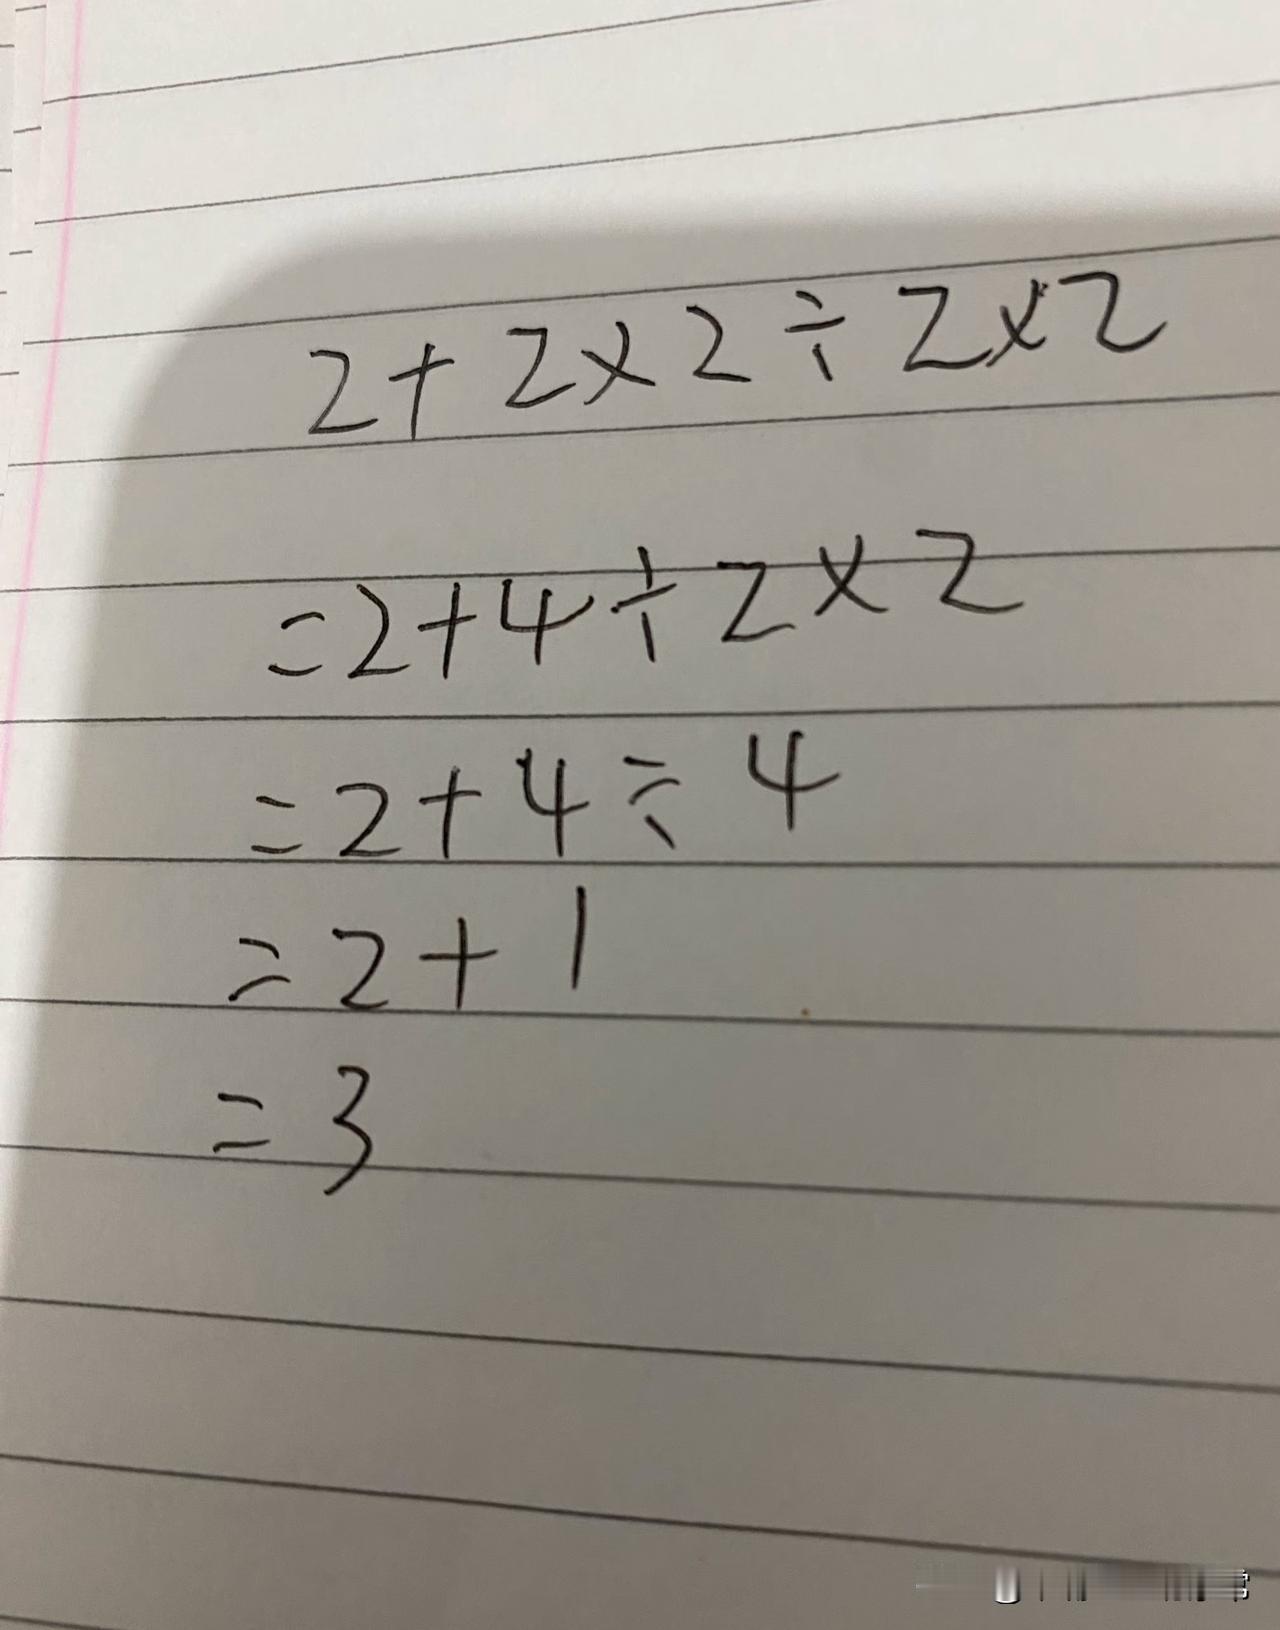 2+2×2÷2×2
=2+4÷2×2
=2+4÷4
=2+1
=3